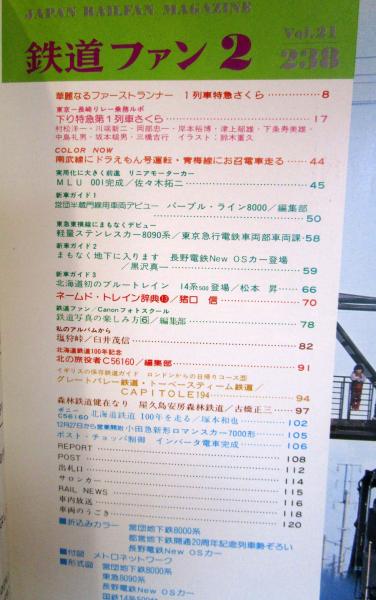 JAPAN RAILFAN MAGAZINE
鉄道ファン 2
Vol.21
238
華麗なるファーストランナー 1列車特急さくら 8
東京−長崎リレー乗務ルポ
下り特急第1列車さくら 17
村松洋一・川端新二・岡部忠一・岸本裕博・津上郁雄・下条寿美雄・
中島礼男・坂本暎男・三橋吉行 イラスト：鈴木重久
COLOR NOW
南武線にドラえもん号運転・青梅線にお召電車走る 44
実用化に大きく前進 リニアモーターカー
MLU 001完成／佐々木拓二 45
新車ガイド1
営団半蔵門線用車両デビュー パープル・ライン8000／編集部
50
東急東横線にまもなくデビュー
軽量ステンレスカー8090系／東京急行電鉄車両部車両課 58
新車ガイド2
まもなく地下に入ります 長野電鉄New OSカー登場
／黒沢真一 59
新車ガイド3
北海道初のブルートレイン 14系500登場／松本 昇 66
ネームド・トレイン辞典⑬／猪口 信 70
鉄道ファン／Canonフォトスクール
鉄道写真の楽しみ方⑥／編集部 78
私のアルバムから
塩狩峠／臼井茂信 82
北海道鉄道100年記念
北の旅役者C56160／編集部 91
イギリスの保存鉄道ガイド ロンドンからの日帰りコース
グレートバレー鉄道・トーベースティーム鉄道／
CAPITOLE194 94
森林鉄道健在なり 屋久島安房森林鉄道／古橋正三 97
ポニー
C56160 北海道鉄道 100年を走る／塚本和也 102
12月27日から営業開始 小田急新形ロマンスカー7000形 105
ポスト・チョッパ制御 インバータ電車完成 106
REPORT 108
POST 112
出札口 114
サロンカー 115
RAIL NEWS 116
車内放送 116
車両のうごき 118
120
■折込みカラー 営団地下鉄8000系
都営地下鉄開通20周年記念列車勢ぞろい
長野電鉄New OSカー
■付図 メトロネットワーク
■形式図 営団地下鉄8000系
東急8090系
長野電鉄New OSカー